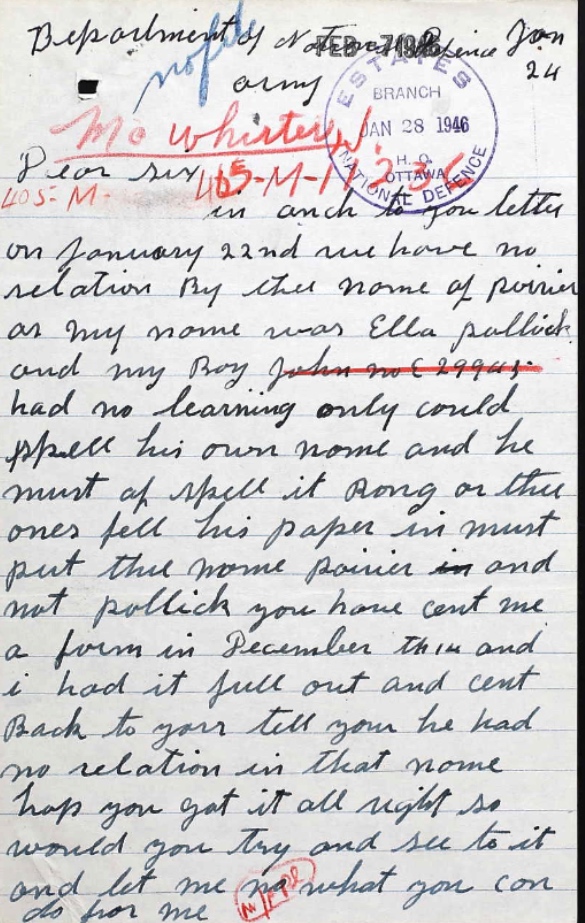 Department of National Defence Jan
FEB 7 1946
24
no file
army
ESTATES
BRANCH
JAN 28 1946
H.Q.
OTTAWA
NATIONAL DEFENCE
Mc Whirter J.
Dear sir
405-M-
in anch to you letter
on January 22nd we have no
relation By thee nome of poirier
as my name was Ella pollick
and my Boy John no E 29945
had no learning only could
spell his own nome and he
must of spell it Rong or thee
ones fell his paper in must
put thee nome poirier in and
not pollick you have cent me
a form in December th 14 and
i had it full out and cent
Back to yors tell your he had
no relation in that nome
hop you got it all right so
would you try and see to it
and let me no what you con
do for me